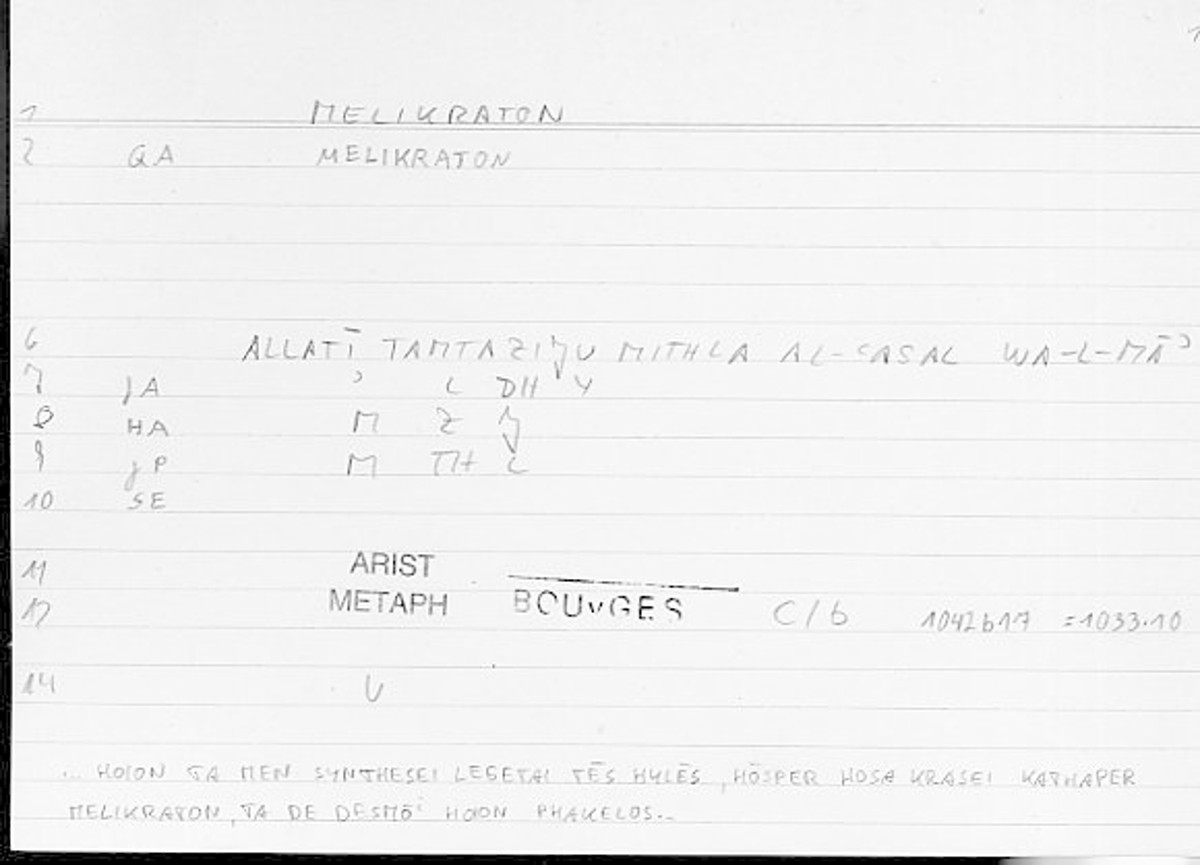 1 MELIKRATON
2 GA MELIKRATON
6 ALLATĪ TAMTAZIǦU MITHLA AL-ʿASAL WA-L-MĀʾ
7 JA ʾ L DH Y
8 HA M Z Ǧ
9 JP M TH L
10 SE
11 ARIST
12 METAPH BOUYGES C/b 1042b17 =1033.10
14 U
... HOION TA MEN SYNTHESEI LEGETAI TĒS HYLĒS, HŌSPER HOSA KRASEI KATHAPER
MELIKRATON, TA DE DESMŌⁱ HOION PHAKELOS...